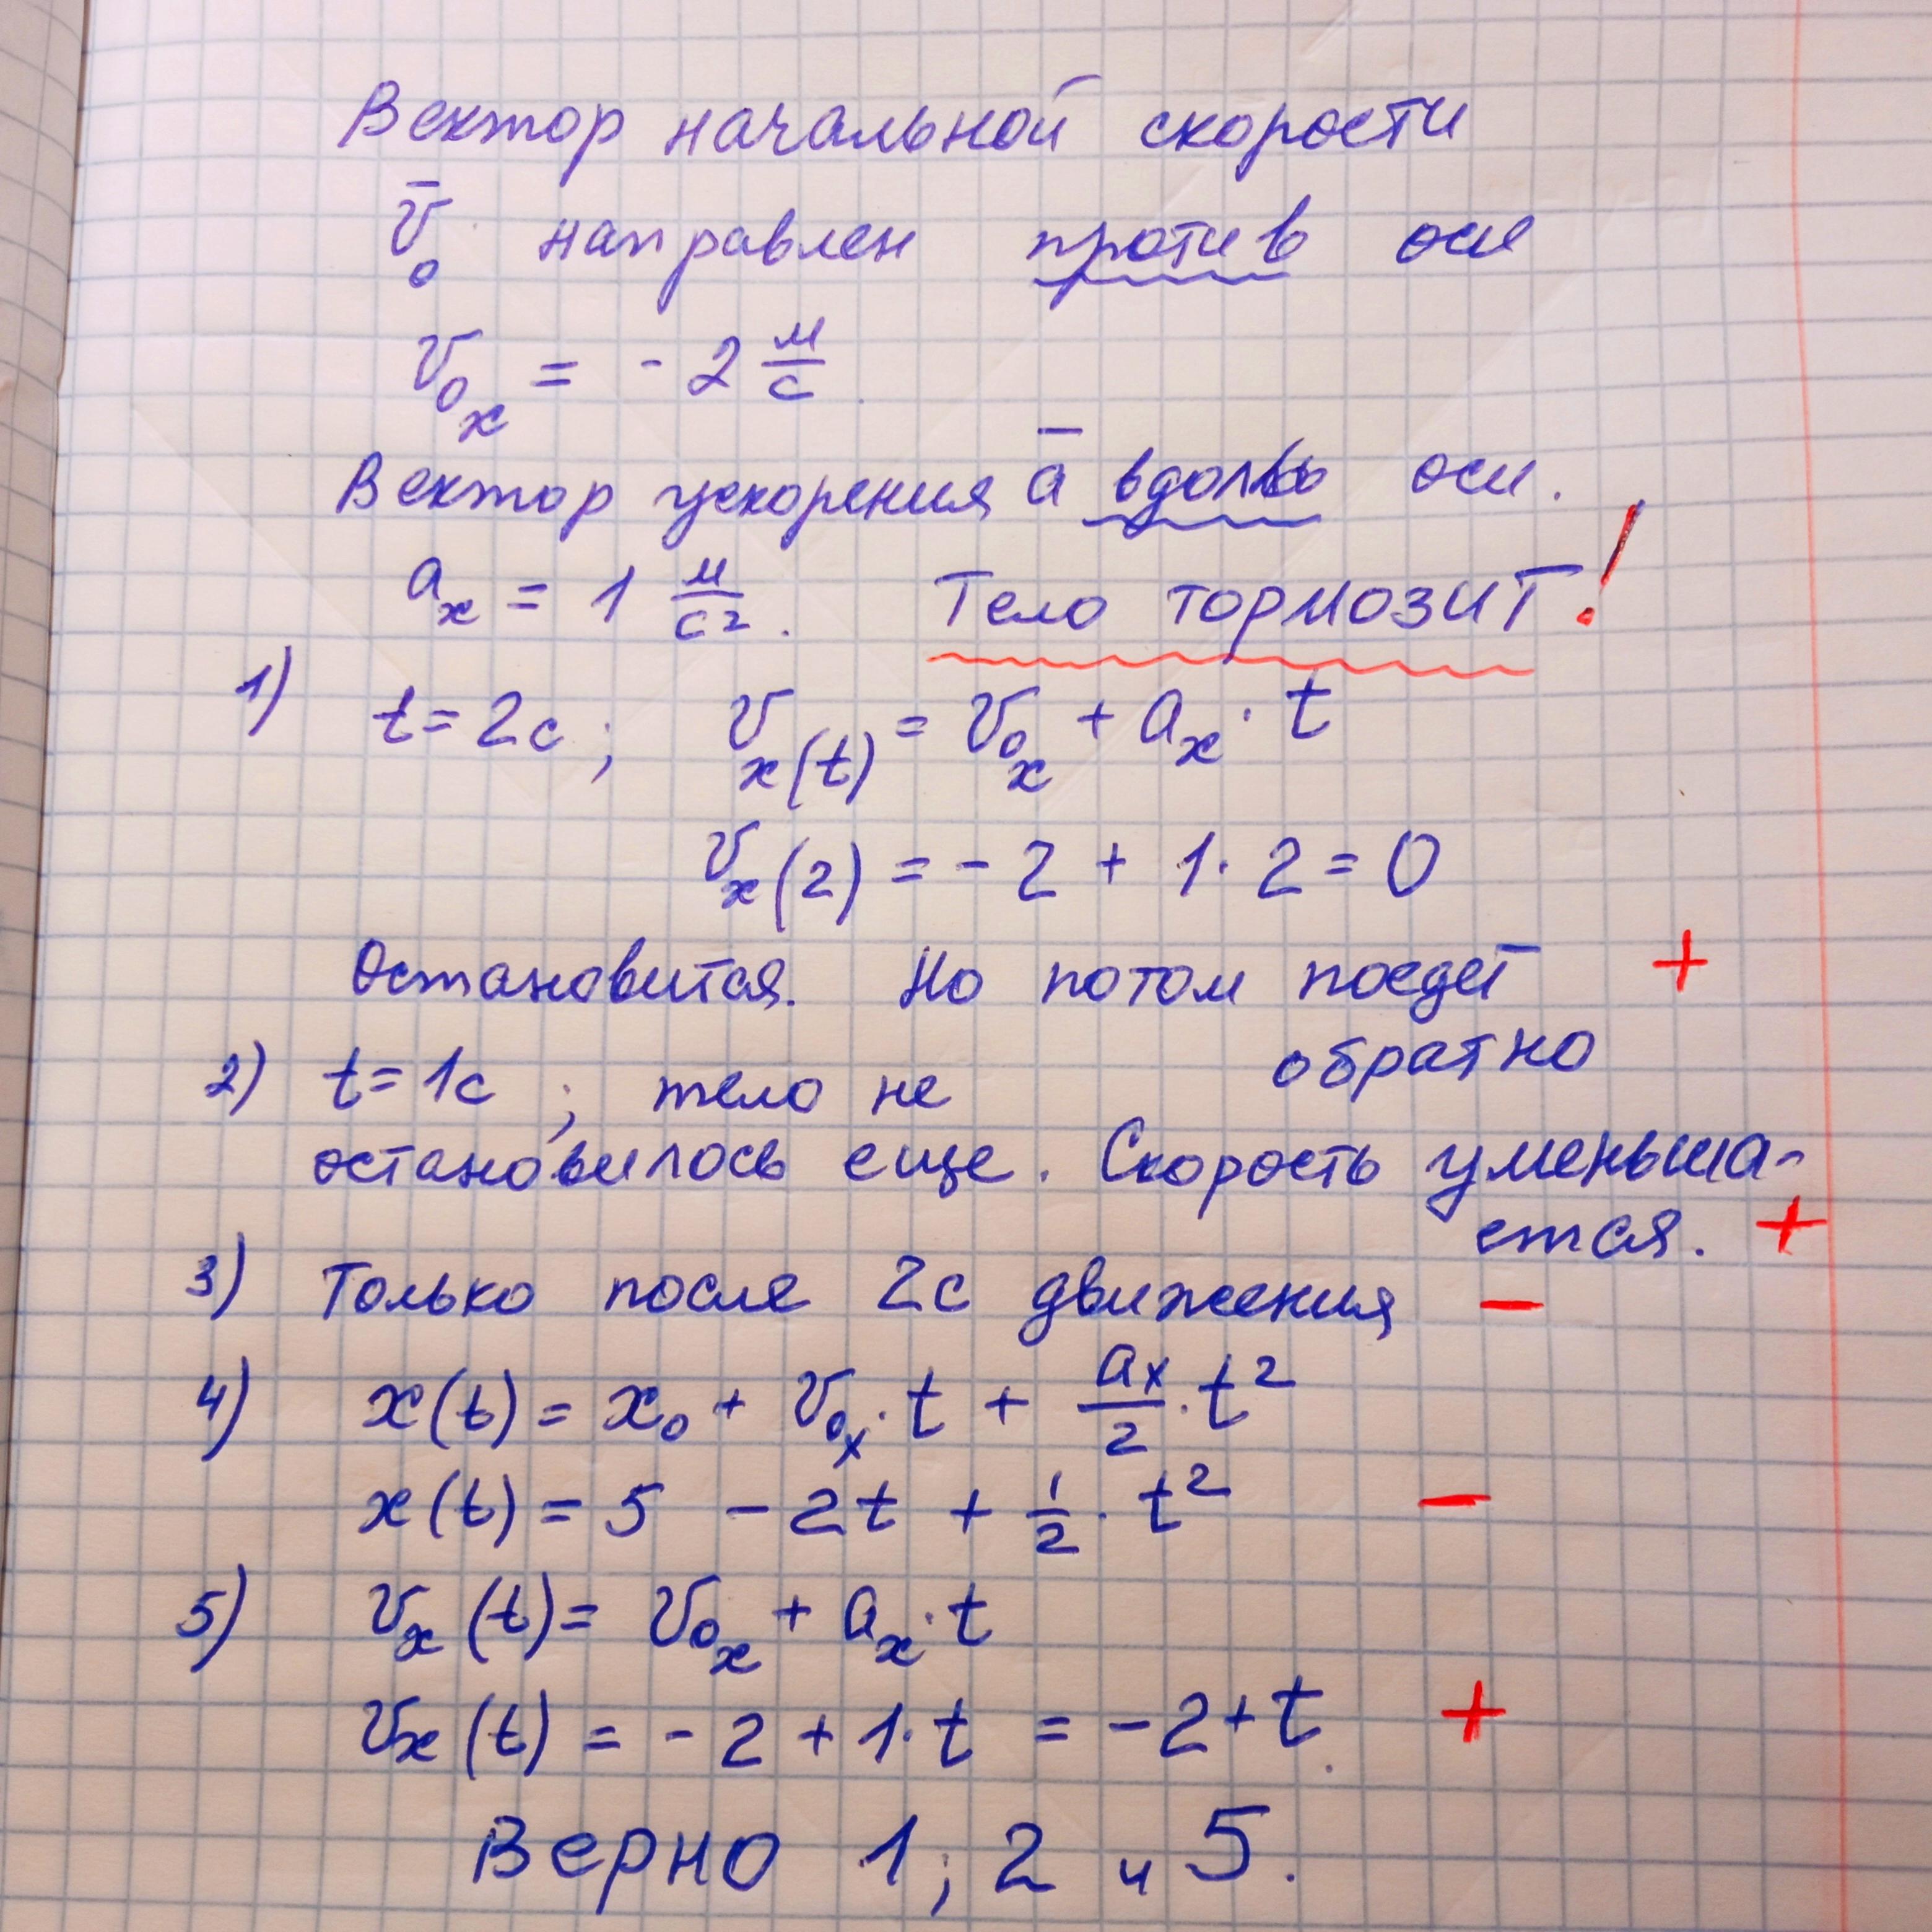 Вектор начальной скорости
v̄₀ направлен против оси
v₀ₓ = - 2 м/с
Вектор ускорения ā вдоль оси.
aₓ = 1 м/с². Тело тормозит!
1) t = 2с; vₓ(t) = v₀ₓ + aₓ · t
vₓ(2) = - 2 + 1 · 2 = 0
Остановится. Но потом поедет +
обратно
2) t = 1с ; тело не
остановилось еще. Скорость уменьша-
ется. +
3) Только после 2с движения −
4) x(t) = x₀ + v₀ₓ · t + aₓ/2 · t²
x(t) = 5 - 2t + 1/2 · t² −
5) vₓ(t) = v₀ₓ + aₓ · t
vₓ(t) = - 2 + 1 · t = - 2 + t. +
Верно 1; 2 и 5.